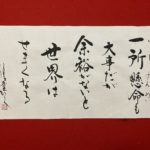 一所懸命も
大事だが
余裕がないと
世界は
せまくなる